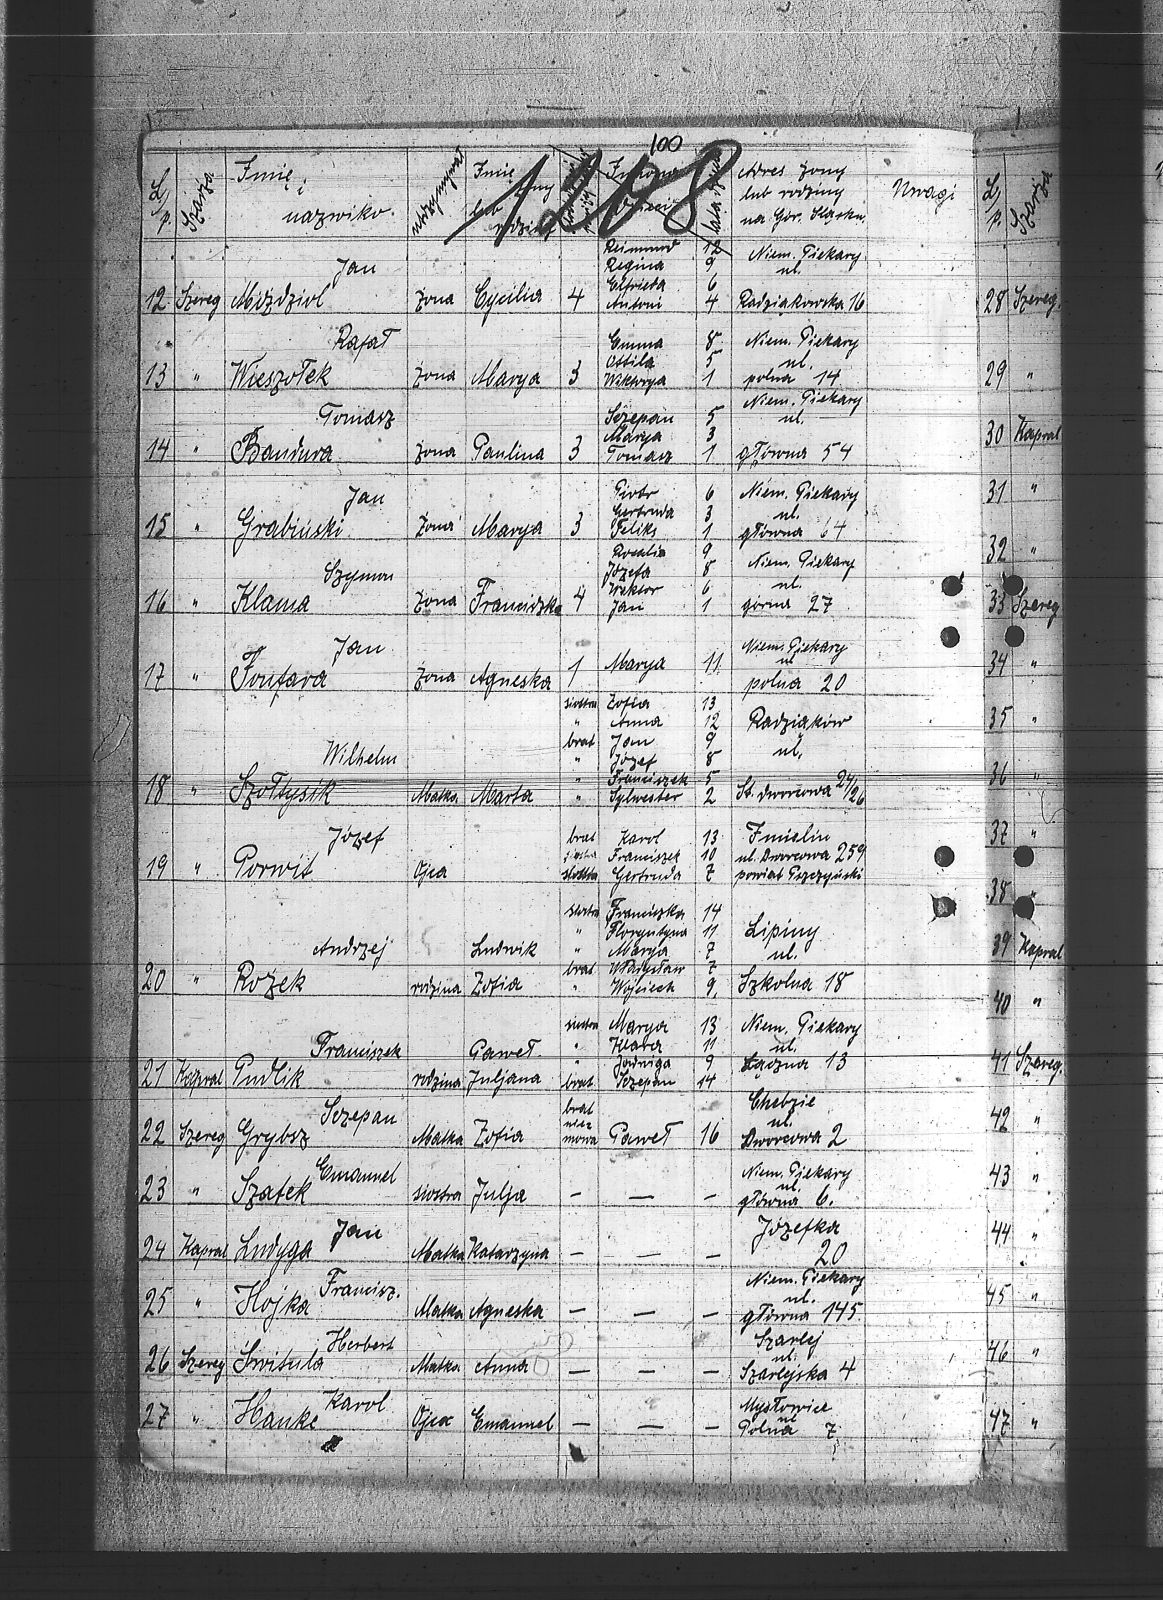 100
1208
L/p. Szarża Imię i nazwisko. Imię Adres żony lub rodziny na Gór. Śląsku. Uwagi L/p. Szarża
Reimund 12 Niem. Piekary
Jan Regina 9 ul.
Elfrieda 6
12 Szereg Moździoł żona Cycilia 4 Antoni 4 Radziąkowska 16 28 Szereg.
Rafał Emma 8 Niem. Piekary
Ottila 5 ul.
13 " Wieszołek żona Marya 3 Wiktorya 1 polna 14 29 "
Tomasz Niem. Piekary
Szczepan 5 ul.
Marya 3
14 " Bandura żona Paulina 3 Tomasz 1 główna 54 30 Kapral
Jan Piotr 6 Niem. Piekary 31 "
Gertruda 3 ul.
15 " Grabiński żona Marya 3 Feliks 1 główna 64
Rozalia 9 32 "
Szymon Józefa 8 Niem. Piekary
Wiktor 6 ul.
16 " Klama żona Franciszka 4 Jan 1 górna 27 33 Szereg
Jan Niem. Piekary
1 Marya 11 ul. 34 "
17 " Fontara żona Agneska polna 20
siostra Zofia 13
" Anna 12 Radziąków 35 "
brat Jan 9 ul.
Wilhelm " Józef 8
" Franciszek 5 36 "
18 " Szołtysik Matka Marta " Sylwester 2 St. dworcowa 24/26
Józef brat Karol 13 Imielin 37 "
siostra Franciszek 10 ul. Dworcowa 259
19 " Porwit Ojca siostra Gertruda 7 powiat Pszczyński
siostra Franciszka 14 38 "
" Florentyna 11 Lipiny
Andrzej Ludwik " Marya 7 ul. 39 Kapral
brat Władysław 7
20 " Rożek rodzina Zofia " Wojciech 9 Szkolna 18
40 "
siostra Marya 13 Niem. Piekary
Franciszek Paweł " Klara 11 ul.
" Jadwiga 9 41 Szereg.
21 Kapral Pudlik rodzina Juljana brat Szczepan 14 Łączna 13
Szczepan brat Chebzie 42 "
ul.
22 Szereg Grybsz Matka Zofia Paweł 16 Dworcowa 2
Emanuel Niem. Piekary 43 "
ul.
23 " Szatek siostra Julja — — — główna 6.
Jan Józefka 44 "
24 Kapral Ludyga Matka Katarzyna — — — 20
Francisz. Niem. Piekary
ul. 45 "
25 " Hojka Matka Agneska — — — główna 145
Herbert Szarlej 46 "
ul.
26 Szereg Switula Matka Anna — — — Szarlejska 4
Karol Mysłowice
ul
27 " Hanke Ojca Emanuel — — — Polna 7 47 "